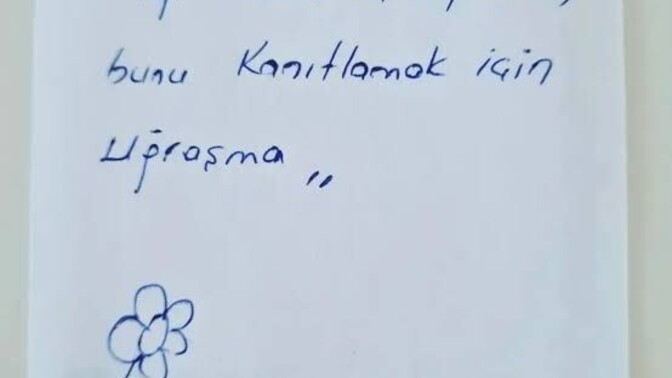 bunu Kanıtlamak için
Uğraşma „